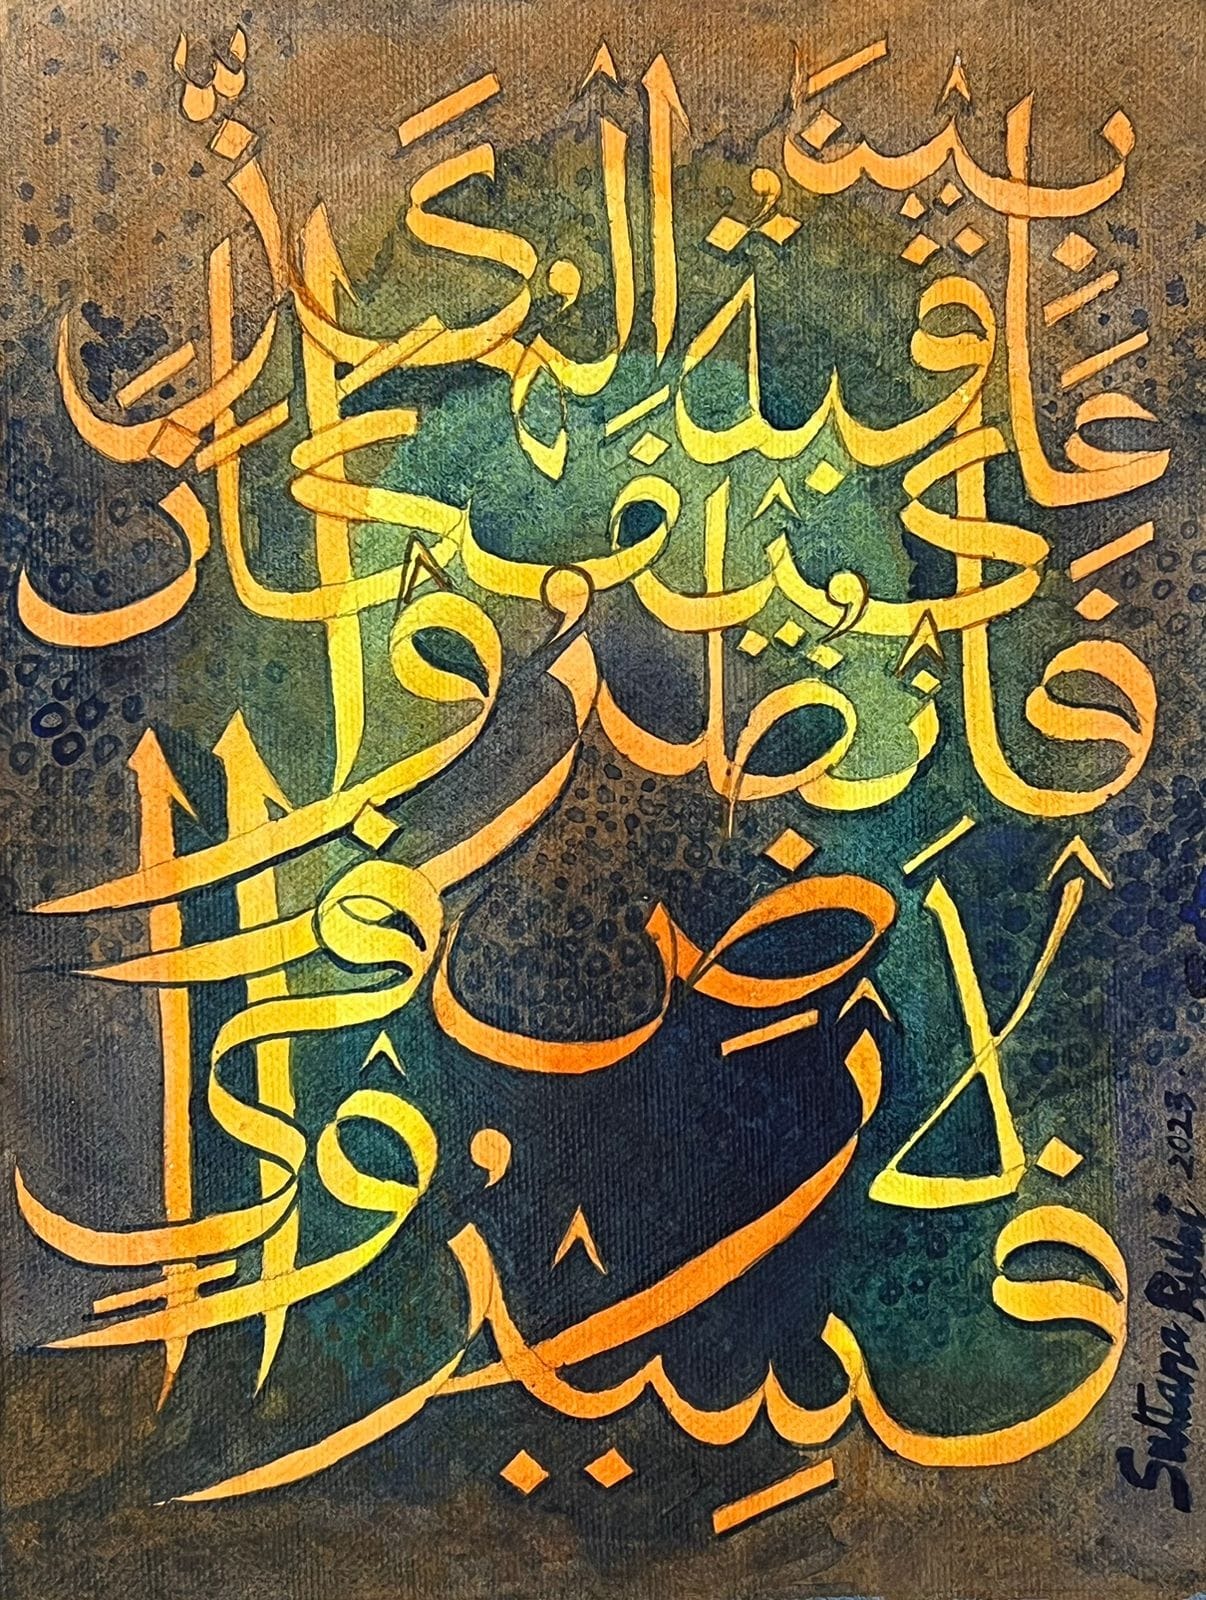 فَسِيرُوا فِي
الْأَرْضِ
فَانْظُرُوا
كَيْفَ كَانَ
عَاقِبَةُ الْمُكَذِّبِينَ
Sultana 2023